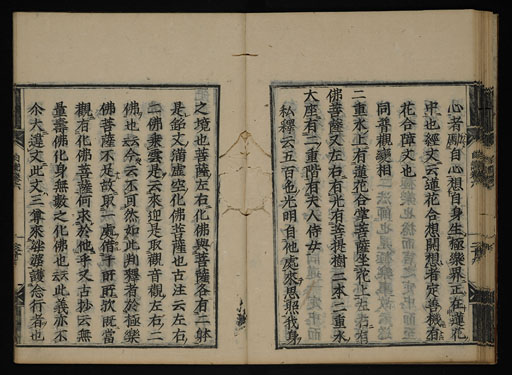 心者勵自心想自身生極樂界正在蓮花
中也經文云蓮花合想開想者定善機有
花合障文也
同普觀變相
二重水上有蓮花合掌菩薩坐花上左右有
佛菩薩又左右有光有菩提樹二本二重水
大座有二重階有天人侍女
私釋云五百色光明自他處來思照我身
之境也菩薩左右化佛與菩薩各有二躰
是餡文滿虛空化佛菩薩也古注云左右
二佛乘雲是云來迎是取觀音觀左右二
佛也云今云不可然如此判釋者於極樂
佛菩薩不足故取一處借
觀有化佛菩薩何求於他乎又古抄云無
量壽佛化身無數之化佛也云此義亦不
尒大違文此文三尊來
護念行者也